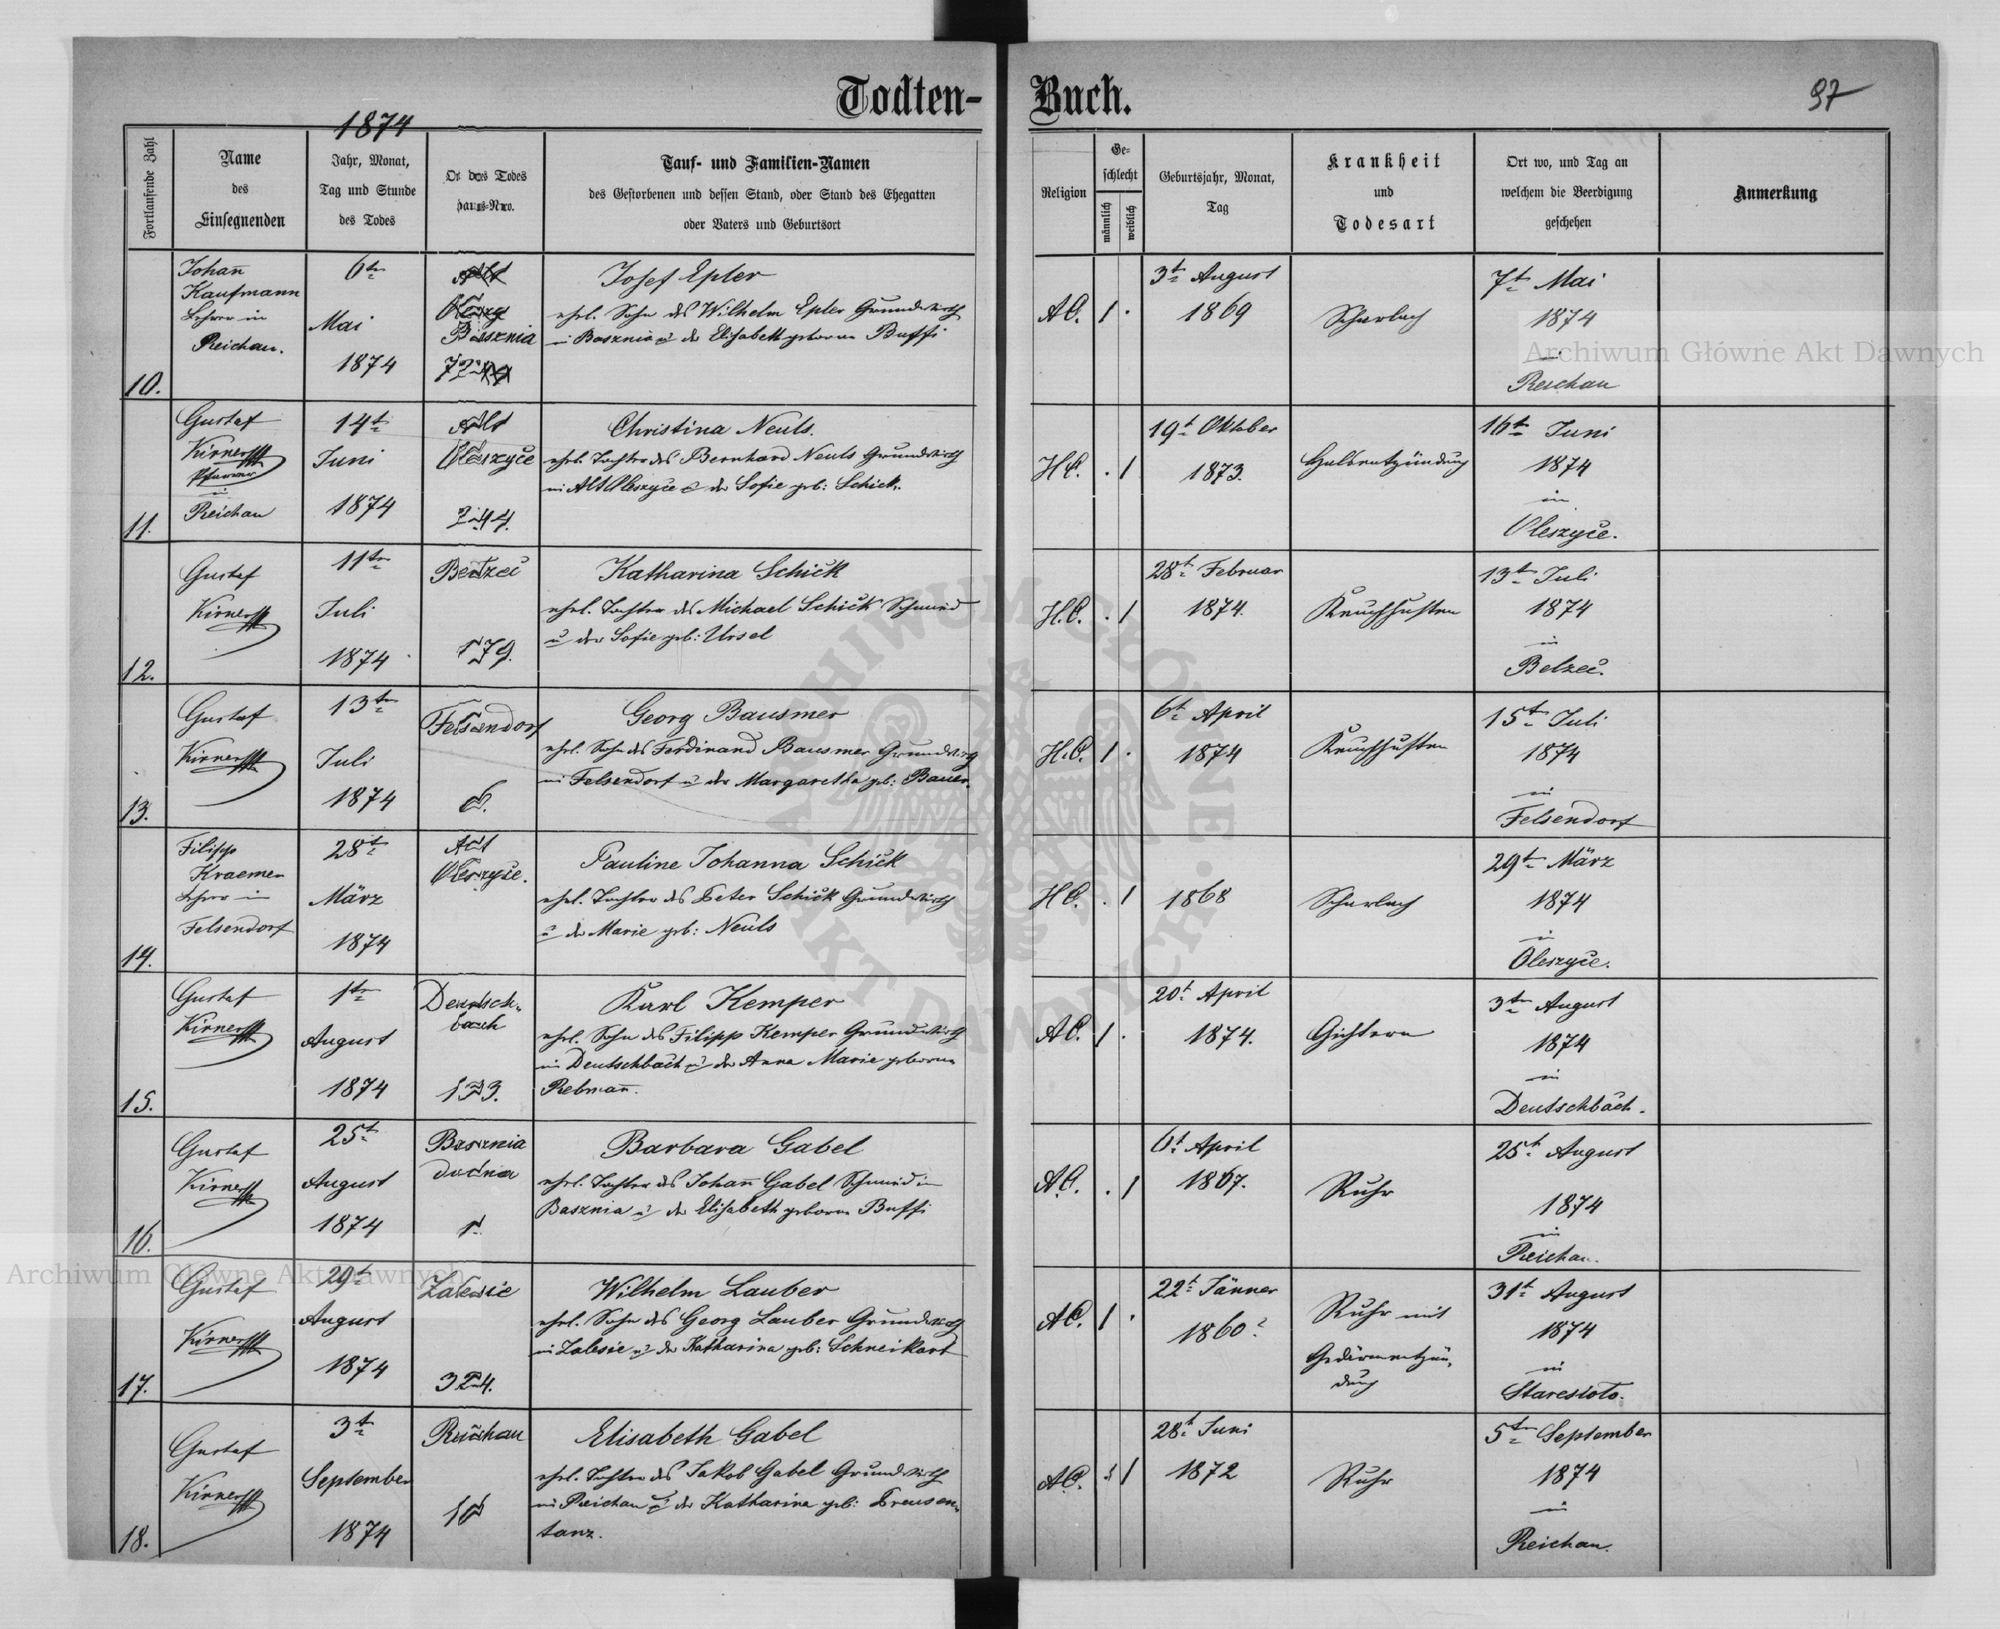 Todten- Buch.
97
1874
Fortlaufende Zahl
Name
des
Einsegnenden
Jahr, Monat,
Tag und Stunde
des Todes
Ort des Todes
Haus-Nro.
Tauf- und Familien-Namen
des Gestorbenen und dessen Stand, oder Stand des Ehegatten
oder Vaters und Geburtsort
Religion
Ge-
schlecht
männlich
weiblich
Geburtsjahr, Monat,
Tag
Krankheit
und
Todesart
Ort wo, und Tag an
welchem die Beerdigung
geschehen
Anmerkung
10.
Johan̄
Kaufmann
Lehrer in
Reichau.
6ten
Mai
1874
Basznia
72
Josef Epler
ehel. Sohn des Wilhelm Epler Grundwirth
in Basznia u. der Elisabeth geborne Buffi
A.C.
1 .
3t. August
1869
Scharlach
7t. Mai
1874
in
Reichau
11.
Gustaf
Kirner
Pfarrer
in
Reichau
14t.
Juni
1874
Alt
Oleszyce
244.
Christina Neuls.
ehel. Tochter des Bernhard Neuls Grundwirth
in Alt Oleszyce u. der Sofie geb: Schick.
H.C.
. 1
19t. Oktober
1873.
Halsentzündung
16t. Juni
1874
in
Oleszyce.
12.
Gustaf
Kirner
11ten
Juli
1874
Belzec
179.
Katharina Schick
ehel. Tochter des Michael Schick Schmied
u. der Sofie geb: Ursel
H.C.
. 1
28t. Februar
1874.
Keuchhusten
13t. Juli
1874
in
Belzec.
13.
Gustaf
Kirner
13ten
Juli
1874
Felsendorf
6.
Georg Bausmer
ehel. Sohn des Ferdinand Bausmer Grundwirth
in Felsendorf u. der Margaretha geb: Bauer.
H.C.
1 .
6t. April
1874
Keuchhusten
15t. Juli
1874
in
Felsendorf
14.
Filipp
Kraemer
Lehrer in
Felsendorf
28t.
März
1874
Alt
Oleszyce.
Pauline Johanna Schick
ehel. Tochter des Peter Schick Grundwirth
u. der Marie geb: Neuls
H.C.
. 1
1868
Scharlach
29t. März
1874
in
Oleszyce.
15.
Gustaf
Kirner
1ten
August
1874
Deutsch-
bach
133.
Karl Kemper
ehel. Sohn des Filipp Kemper Grundwirth
in Deutschbach u. der Anna Marie geborne
Rebman̄.
A.C.
1 .
20t. April
1874.
Gichtern
3ten August
1874
in
Deutschbach.
16.
Gustaf
Kirner
25t.
August
1874
Basznia
dolna
1.
Barbara Gabel
ehel. Tochter des Johan̄ Gabel Schmied in
Basznia u. der Elisabeth geborne Buffi
A.C.
. 1
6t. April
1867.
Ruhr
25t. August
1874
in
Reichau.
17.
Gustaf
Kirner
29t.
August
1874
Zalesie
324.
Wilhelm Lauber
ehel. Sohn des Georg Lauber Grundwirth
in Zalesie u. der Katharina geb: Schneikart
A.C.
1 .
22t. Jänner
1860?
Ruhr mit
Gedärmentzün-
dung
31t. August
1874
in
Staresioło.
18.
Gustaf
Kirner
3t.
September
1874
Reichau
Elisabeth Gabel
ehel. Tochter des Jakob Gabel Grundwirth
in Reichau u. der Katharina geb: Preusen-
tanz.
A.C.
1
28t. Juni
1872
Ruhr
5ten September
1874
in
Reichau.
Archiwum Główne Akt Dawnych
Archiwum Główne Akt Dawnych
ARCHIWUM GŁÓWNE • AKT DAWNYCH •